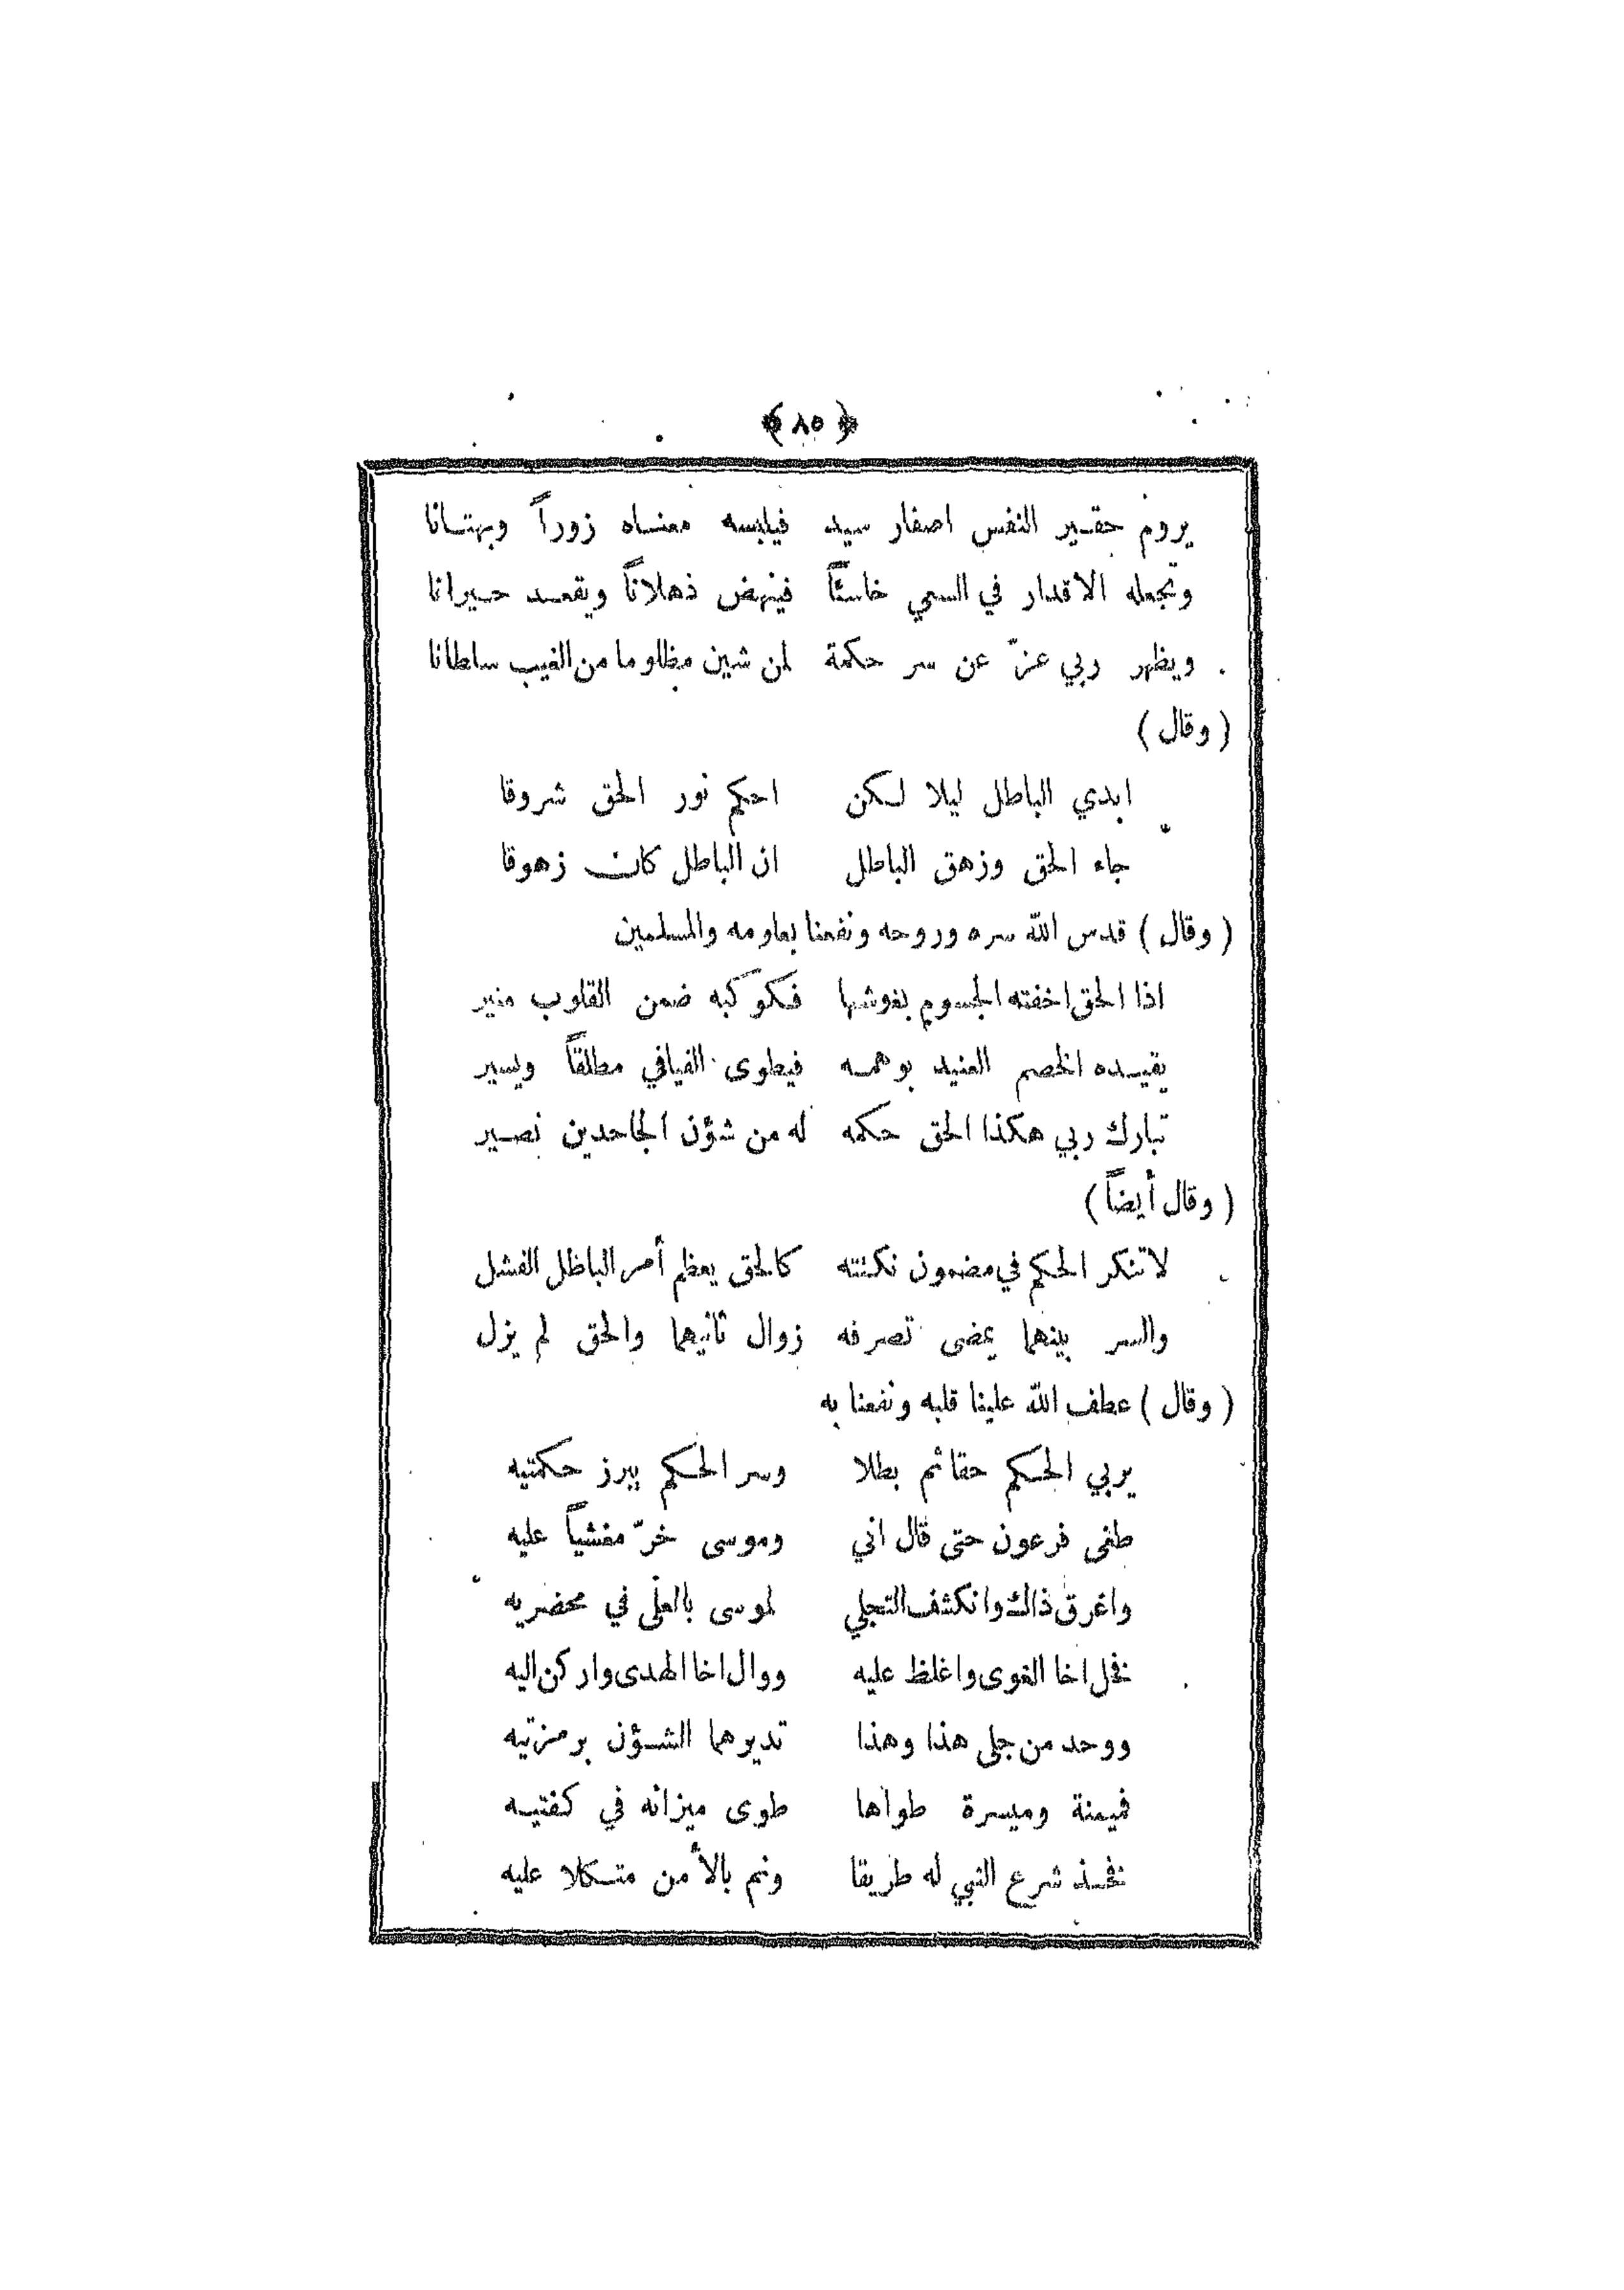 ﴿ ٨٥ ﴾
يروم حقير النفس اصغار سيد فيلبسه معناه زوراً وبهتانا
وتجعله الاقدار في السعي خاسئاً فينهض ذهلاناً ويقعد حيرانا
ويظهر ربي عزّ عن سر حكمة لمن شين مظلوما من الغيب سلطانا
( وقال )
ابدي الباطل ليلا لكن احكم نور الحق شروقا
جاء الحق وزهق الباطل ان الباطل كان زهوقا
( وقال ) قدس الله سره وروحه ونفعنا بعلومه والمسلمين
اذا الحق اخفته الجسوم بغوشها فكوكبه ضمن القلوب منير
يقيده الخصم العنيد بوهمه فيطوى الفيافي مطلقاً ويسير
تبارك ربي هكذا الحق حكمه له من شؤن الجاحدين نصير
( وقال أيضاً )
لا تنكر الحكم في مضمون نكتته كالحق يعظم أمر الباطل الفشل
والسر بينهما يمضى تصرفه زوال ثانيهما والحق لم يزل
( وقال ) عطف الله علينا قلبه ونفعنا به
يربي الحكم حقا ثم بطلا وسر الحكم يبرز حكمتيه
طغى فرعون حتى قال اني وموسى خرّ مغشياً عليه
واغرق ذاك وانكشف التجلي لموسى بالعلى في محضريه
فخل اخا الغوى واغلظ عليه ووال اخا الهدى واركن اليه
ووحد من جلى هذا وهذا تديرهما الشؤن برمزتيه
فميمنة وميسرة طواها طوى ميزانه في كفتيه
فخذ شرع النبي له طريقا ونم بالأمن متكلا عليه